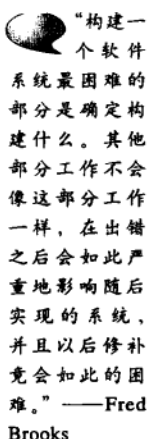 “构建一
个软件
系统最困难的
部分是确定构
建什么。其他
部分工作不会
像这部分工作
一样，在出错
之后会如此严
重地影响随后
实现的系统，
并且以后修补
竟会如此的困
难。”——Fred
Brooks